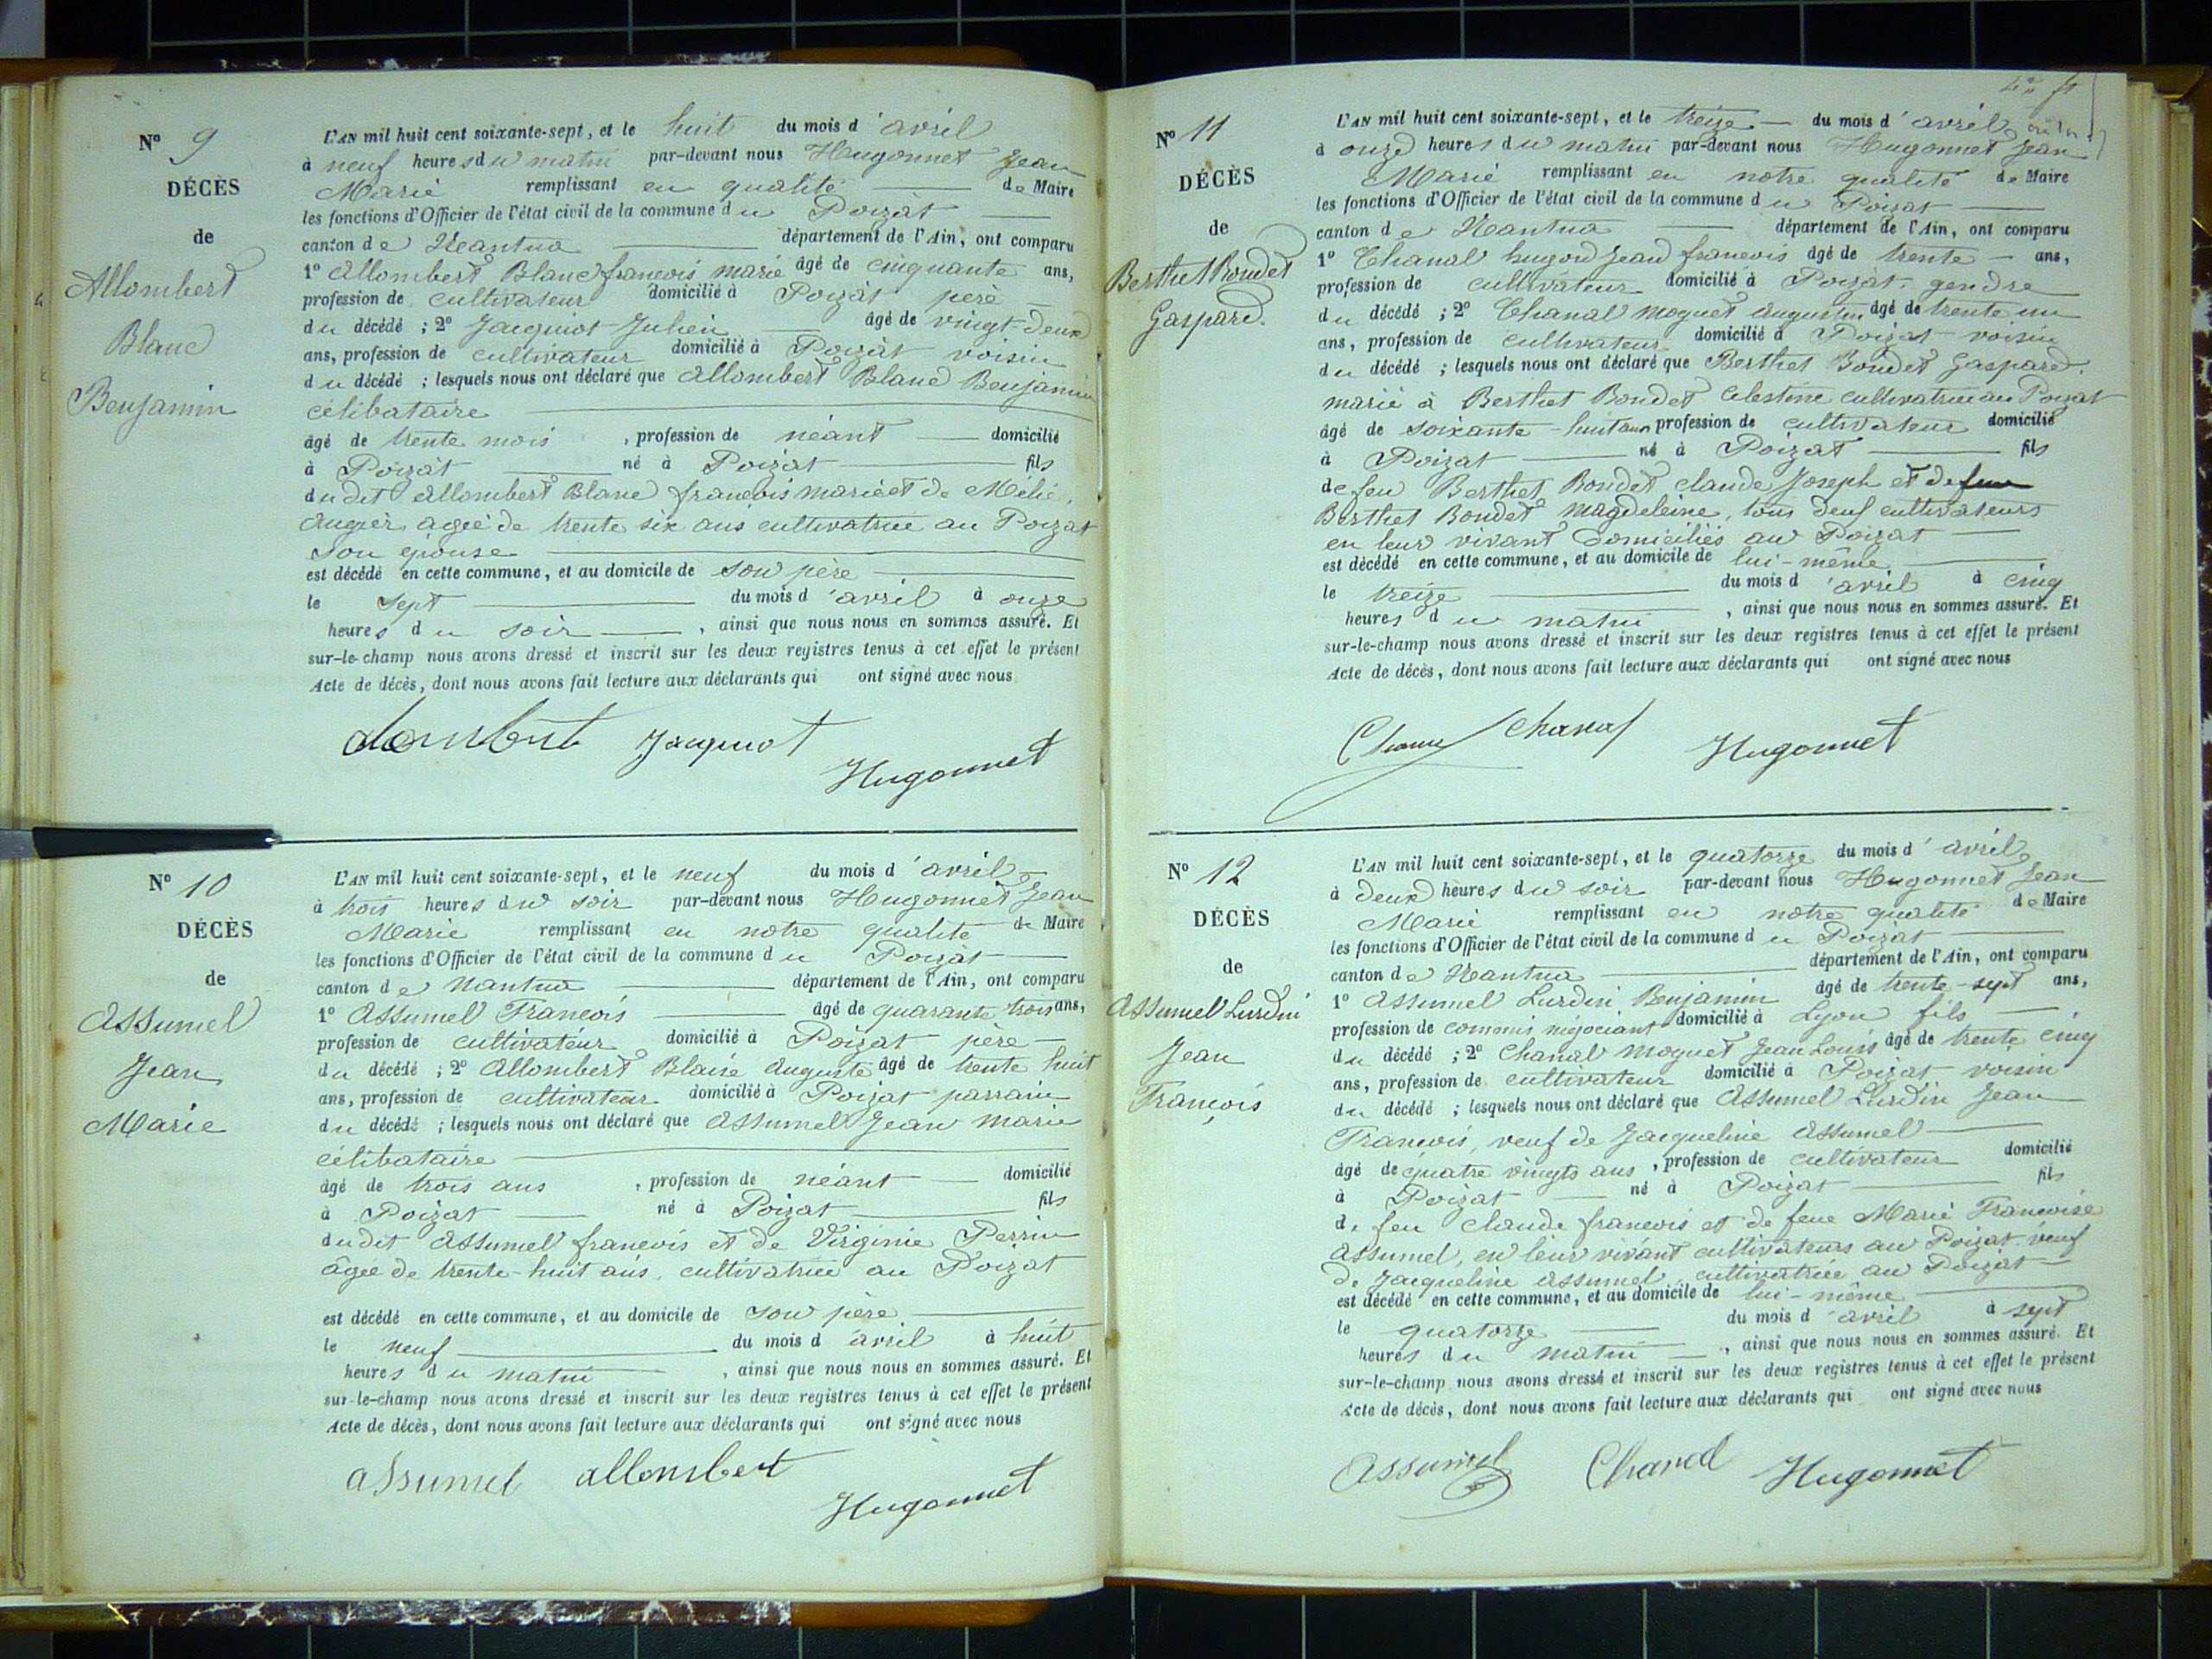 Nº 9
DÉCÈS
de
Allombert
Blanc
Benjamin
L'AN mil huit cent soixante-sept, et le huit du mois d'avril
à neuf heures du matin par-devant nous Hugonnet Jean
Marie remplissant en qualité de Maire
les fonctions d'Officier de l'état civil de la commune du Poizat
canton de Nantua département de l'Ain, ont comparu
1º Allombert Blanc françois marie âgé de cinquante ans,
profession de cultivateur domicilié à Poizat père
du décédé ; 2º Jacquiot Julien âgé de vingt-deux
ans, profession de cultivateur domicilié à Poizat voisin
du décédé ; lesquels nous ont déclaré que Allombert Blanc Benjamin
célibataire
âgé de trente mois, profession de néant domicilié
à Poizat né à Poizat fils
dudit Allombert Blanc françois marie et de Mélie
Augier agée de trente six ans cultivatrice au Poizat
son épouse
est décédé en cette commune, et au domicile de son père
le sept du mois d'avril à onze
heures du soir, ainsi que nous nous en sommes assuré. Et
sur-le-champ nous avons dressé et inscrit sur les deux registres tenus à cet effet le présent
Acte de décès, dont nous avons fait lecture aux déclarants qui ont signé avec nous
Jacquiot
Hugonnet
Nº 10
DÉCÈS
de
Assumel
Jean
Marie
L'AN mil huit cent soixante-sept, et le neuf du mois d'avril
à trois heures du soir par-devant nous Hugonnet Jean
Marie remplissant en notre qualité de Maire
les fonctions d'Officier de l'état civil de la commune du Poizat
canton de Nantua département de l'Ain, ont comparu
1º Assumel François âgé de quarante trois ans,
profession de cultivateur domicilié à Poizat père
du décédé ; 2º Allombert Blaise Auguste âgé de trente huit
ans, profession de cultivateur domicilié à Poizat parrain
du décédé ; lesquels nous ont déclaré que Assumel Jean Marie
célibataire
âgé de trois ans, profession de néant domicilié
à Poizat né à Poizat fils
dudit Assumel françois et de Virginie Perrin
âgée de trente-huit ans, cultivatrice au Poizat
est décédé en cette commune, et au domicile de son père
le neuf du mois d'avril à huit
heures du matin, ainsi que nous nous en sommes assuré. Et
sur-le-champ nous avons dressé et inscrit sur les deux registres tenus à cet effet le présent
Acte de décès, dont nous avons fait lecture aux déclarants qui ont signé avec nous
assumel allombert
Hugonnet
Nº 11
DÉCÈS
de
Berthet Bondet
Gaspard.
L'AN mil huit cent soixante-sept, et le treize du mois d'avril
à onze heures du matin par-devant nous Hugonnet Jean
Marie remplissant en notre qualité de Maire
les fonctions d'Officier de l'état civil de la commune du Poizat
canton de Nantua département de l'Ain, ont comparu
1º Chanal hugon Jean françois âgé de trente ans,
profession de cultivateur domicilié à Poizat gendre
du décédé ; 2º Chanal Moguet Augustin âgé de trente un
ans, profession de cultivateur domicilié à Poizat voisin
du décédé ; lesquels nous ont déclaré que Berthet Bondet Gaspard.
marié à Berthet Bondet Célestine cultivatrice au Poizat
âgé de soixante-huit ans profession de cultivateur domicilié
à Poizat né à Poizat fils
de feu Berthet Bondet claude Joseph et de feue
Berthet Bondet Magdeleine, tous deux cultivateurs
en leur vivant domiciliés au Poizat
est décédé en cette commune, et au domicile de lui-même
le treize du mois d'avril à cinq
heures du matin, ainsi que nous nous en sommes assuré. Et
sur-le-champ nous avons dressé et inscrit sur les deux registres tenus à cet effet le présent
Acte de décès, dont nous avons fait lecture aux déclarants qui ont signé avec nous
Chanal Hugonnet
Nº 12
DÉCÈS
de
Assumel Lurdin
Jean
François
L'AN mil huit cent soixante-sept, et le quatorze du mois d'avril
à deux heures du soir par-devant nous Hugonnet Jean
Marie remplissant en notre qualité de Maire
les fonctions d'Officier de l'état civil de la commune du Poizat
canton de Nantua département de l'Ain, ont comparu
1º Assumel Lurdin Benjamin âgé de trente-sept ans,
profession de commis négociant domicilié à Lyon fils
du décédé ; 2º Chanal Moguet Jean Louis âgé de trente cinq
ans, profession de cultivateur domicilié à Poizat voisin
du décédé ; lesquels nous ont déclaré que Assumel Lurdin Jean
François, veuf de Jacqueline Assumel
âgé de quatre vingts ans, profession de cultivateur domicilié
à Poizat né à Poizat fils
de feu Claude françois et de feue Marie Françoise
Assumel, en leur vivant cultivateurs au Poizat. veuf
de Jacqueline assumel, cultivatrice au Poizat
est décédé en cette commune, et au domicile de lui-même
le quatorze du mois d'avril à sept
heures du matin, ainsi que nous nous en sommes assuré. Et
sur-le-champ nous avons dressé et inscrit sur les deux registres tenus à cet effet le présent
Acte de décès, dont nous avons fait lecture aux déclarants qui ont signé avec nous
Assumel Chanal Hugonnet